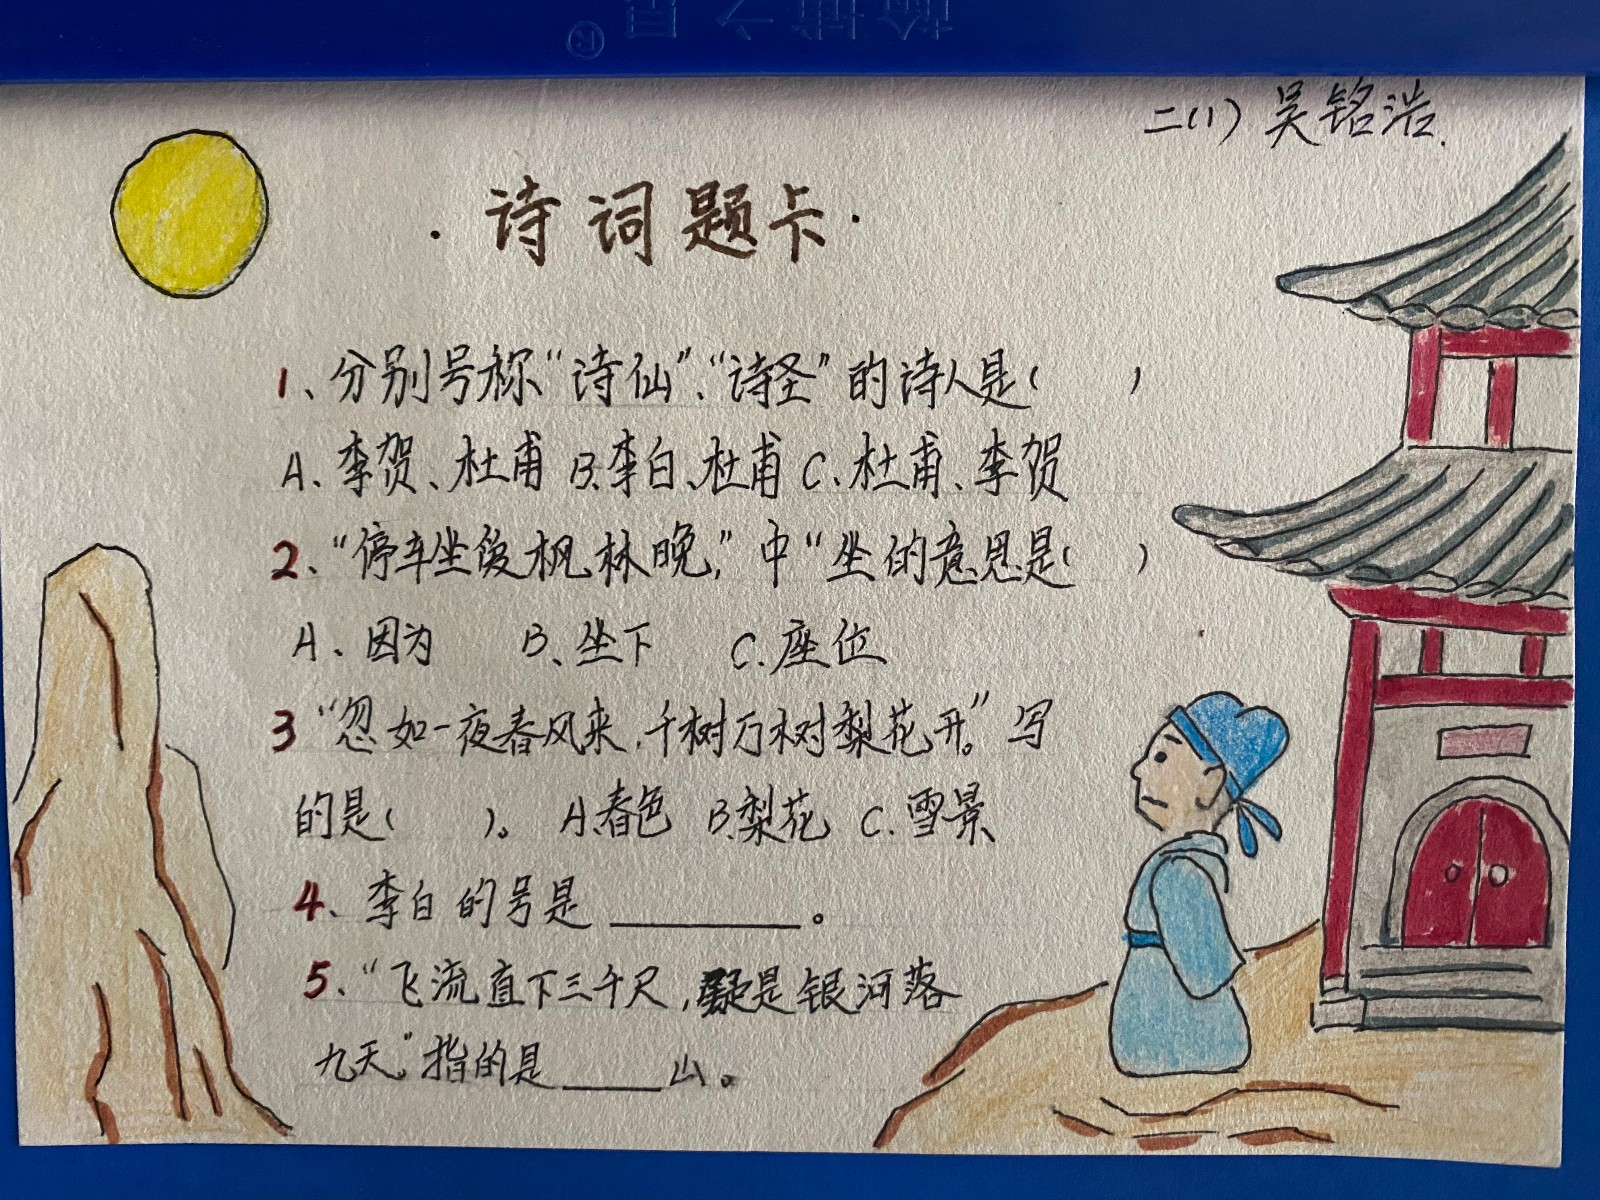 榆城之星®
二(1) 吴铭浩.
·诗词题卡·
1、分别号称“诗仙”、“诗圣”的诗人是( )
A、李贺、杜甫 B.李白、杜甫 C.杜甫、李贺
2、“停车坐爱枫林晚,”中“坐的意思是( )
A、因为 B、坐下 C.座位
3“忽如一夜春风来,千树万树梨花开。”写
的是( )。 A.春色 B.梨花 C.雪景
4、李白的号是________。
5、“飞流直下三千尺,疑是银河落
九天。”指的是____山。